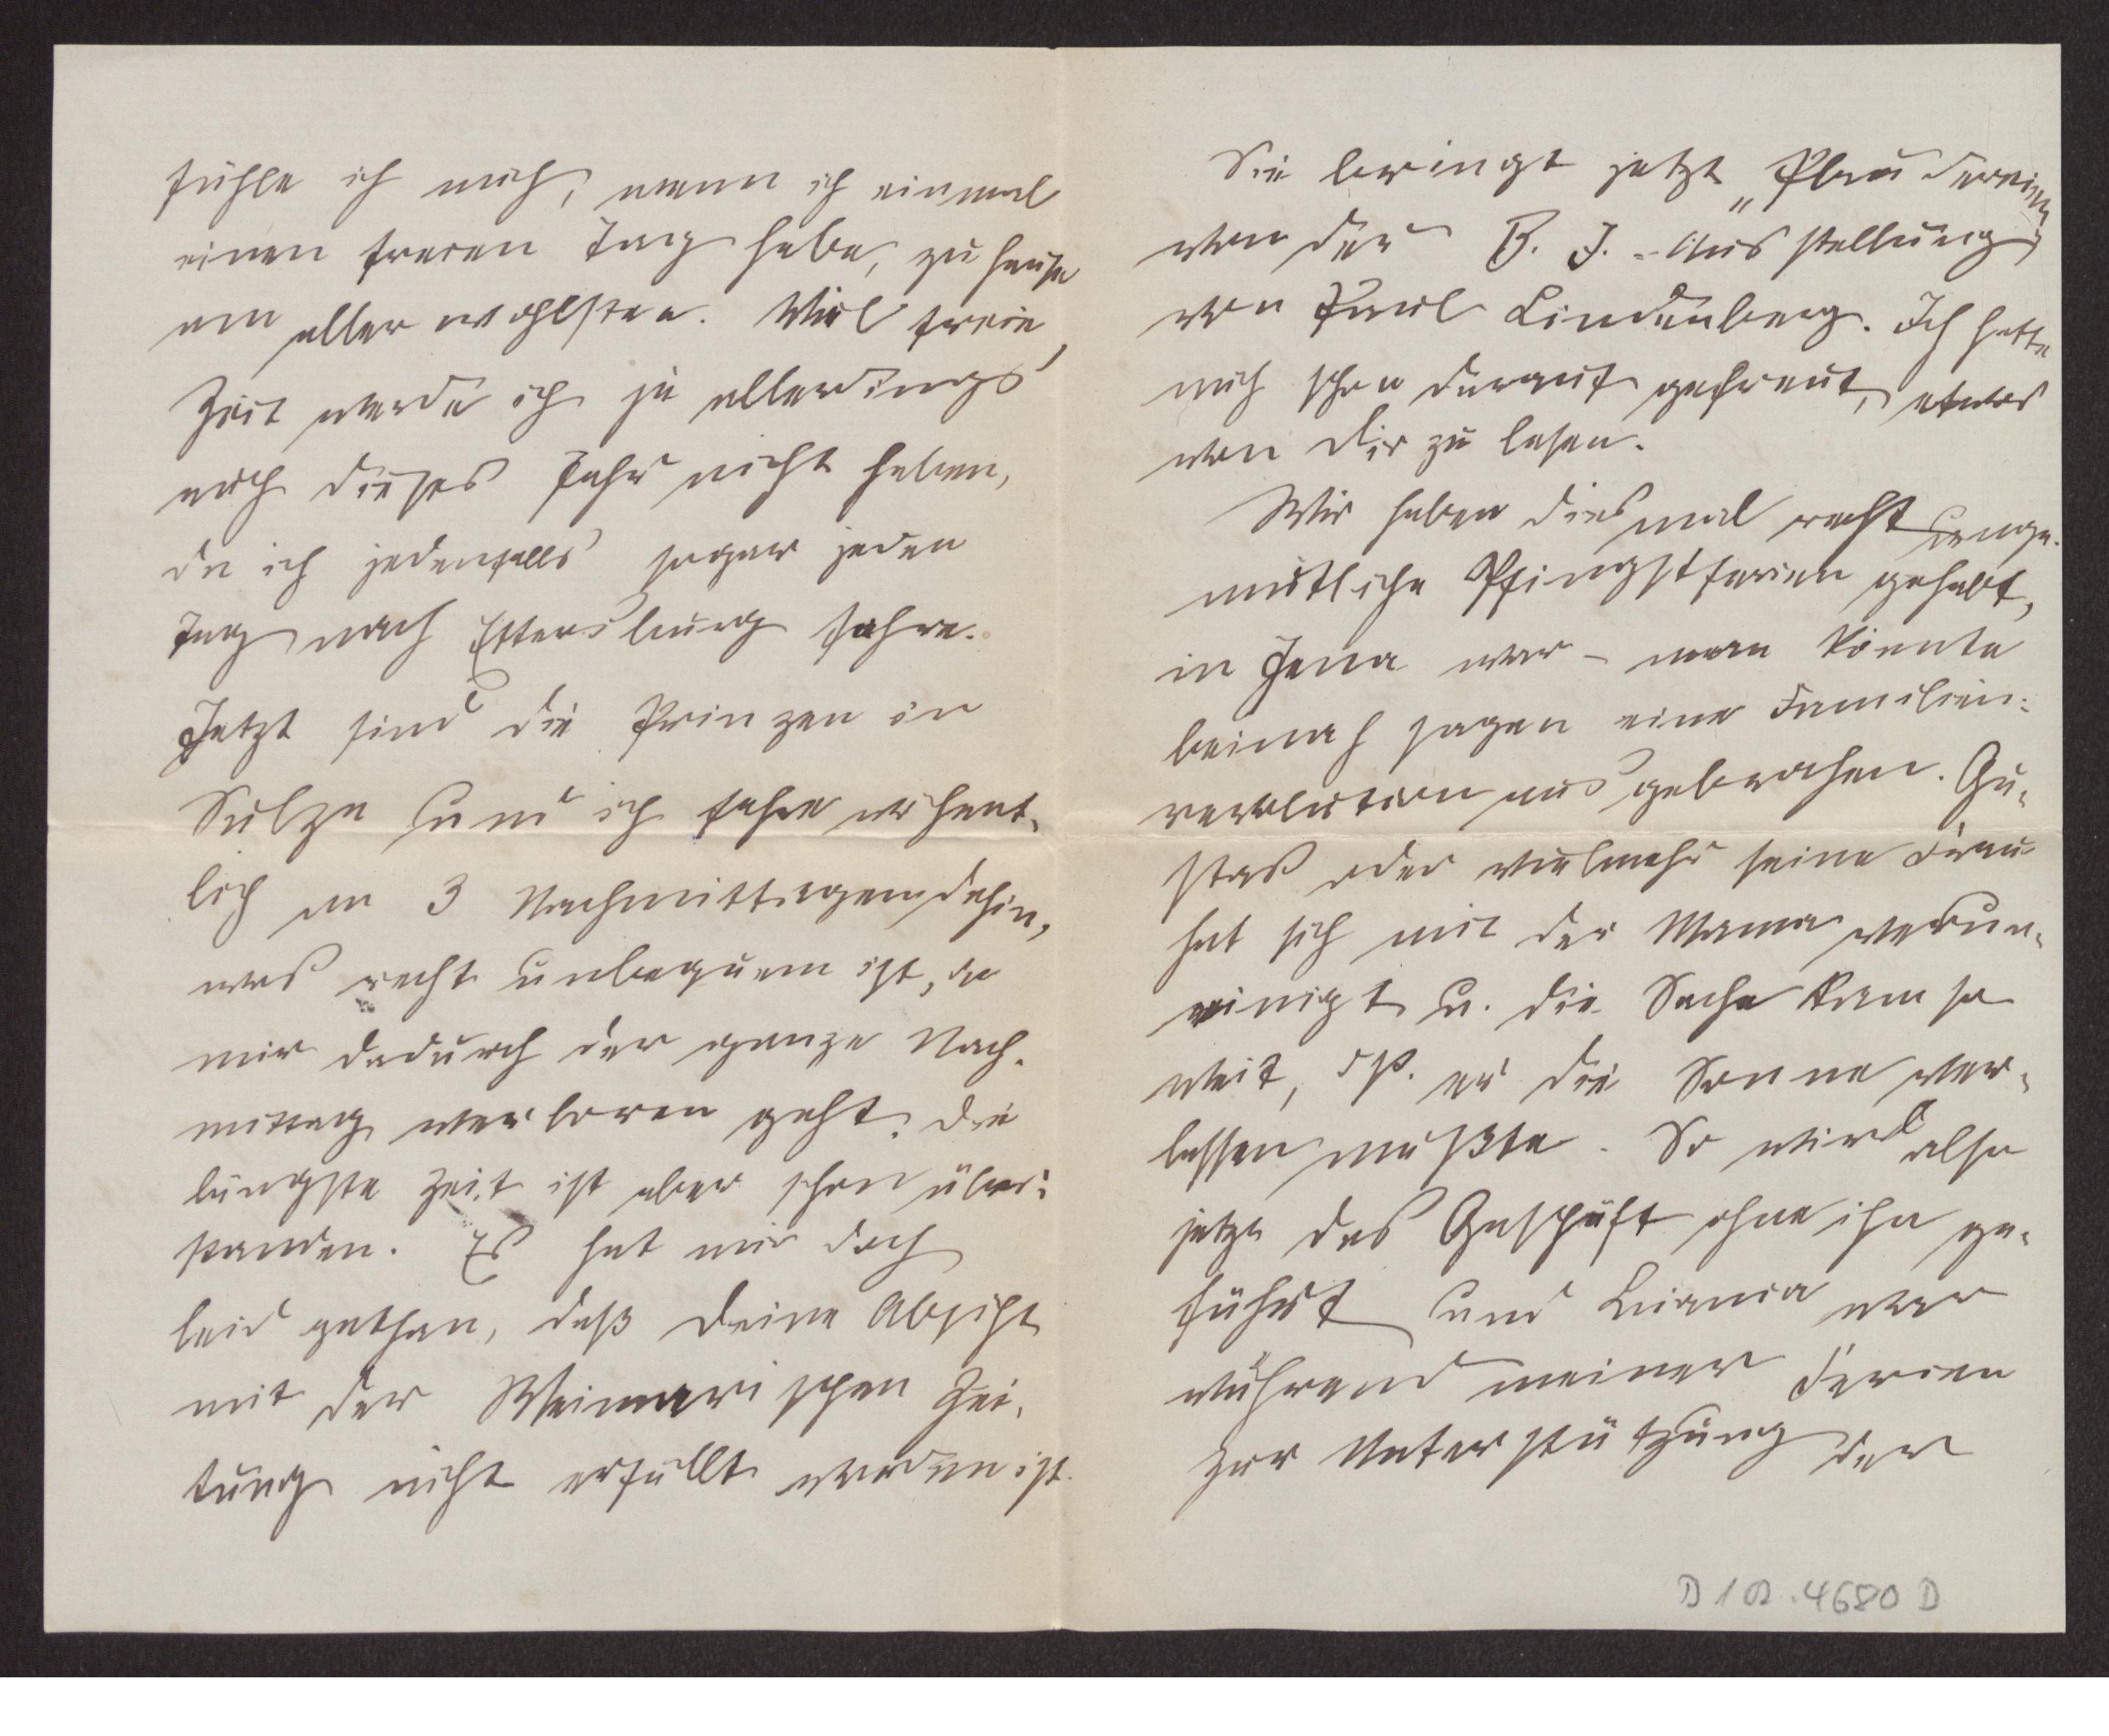 fühle ich mich, wenn ich einmal
einen freien Tag habe, zu Hause
am aller wohlsten. Viel freie
Zeit werde ich ja allerdings
auch dieses Jahr nicht haben,
da ich jedenfalls sogar jeden
Tag nach Ettersburg fahre.
Jetzt sind die Prinzen in
Sulza und ich fahre wöchent-
lich an 3 Nachmittagen dahin,
was recht unbequem ist, da
mir dadurch der ganze Nach-
mittag verloren geht. Die
längste Zeit ist aber schon über-
standen. Es hat mir doch
leid gethan, daß Deine Absicht
mit der Weimarischen Zei-
tung nicht erfüllt worden ist.
Sie bringt jetzt „Plaudereien
von der B. G.-Ausstellung"
von Paul Lindenberg. Ich hatte
mich schon darauf gefreut, etwas
von Dir zu lesen.
Wir haben diesmal recht unge-
mütliche Pfingstferien gehabt,
in Jena war – man könnte
beinah sagen eine Familien-
revolution ausgebrochen. Gu-
stav oder vielmehr seine Frau
hat sich mit der Mama verun-
einigt u. die Sache kam so
weit, dß. er die Sonne ver-
lassen mußte. So wird also
jetzt das Geschäft ohne ihn ge-
führt und war
während meiner Ferien
zur Unterstützung der
D 102.4680 D